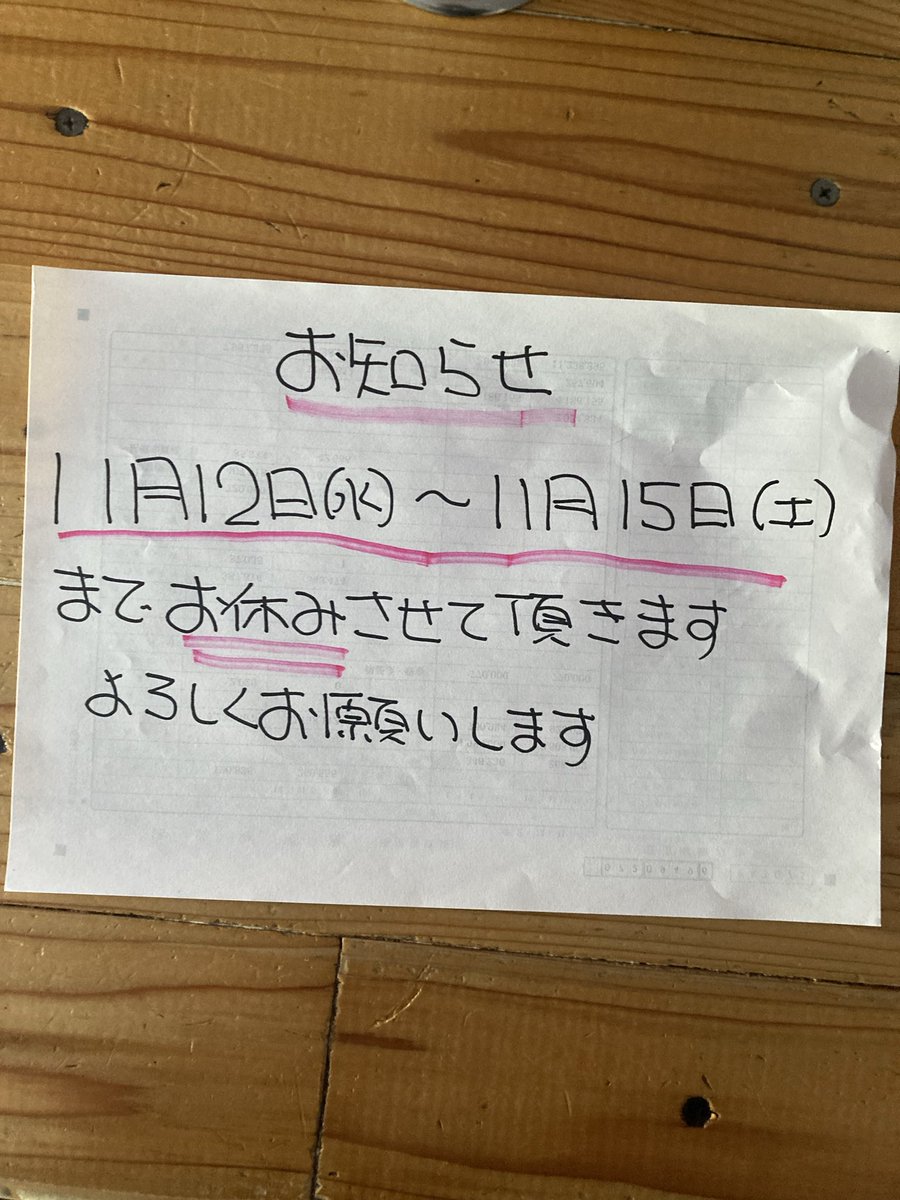 お知らせ
11月12日(水)～11月15日(土)
までお休みさせて頂きます
よろしくお願いします